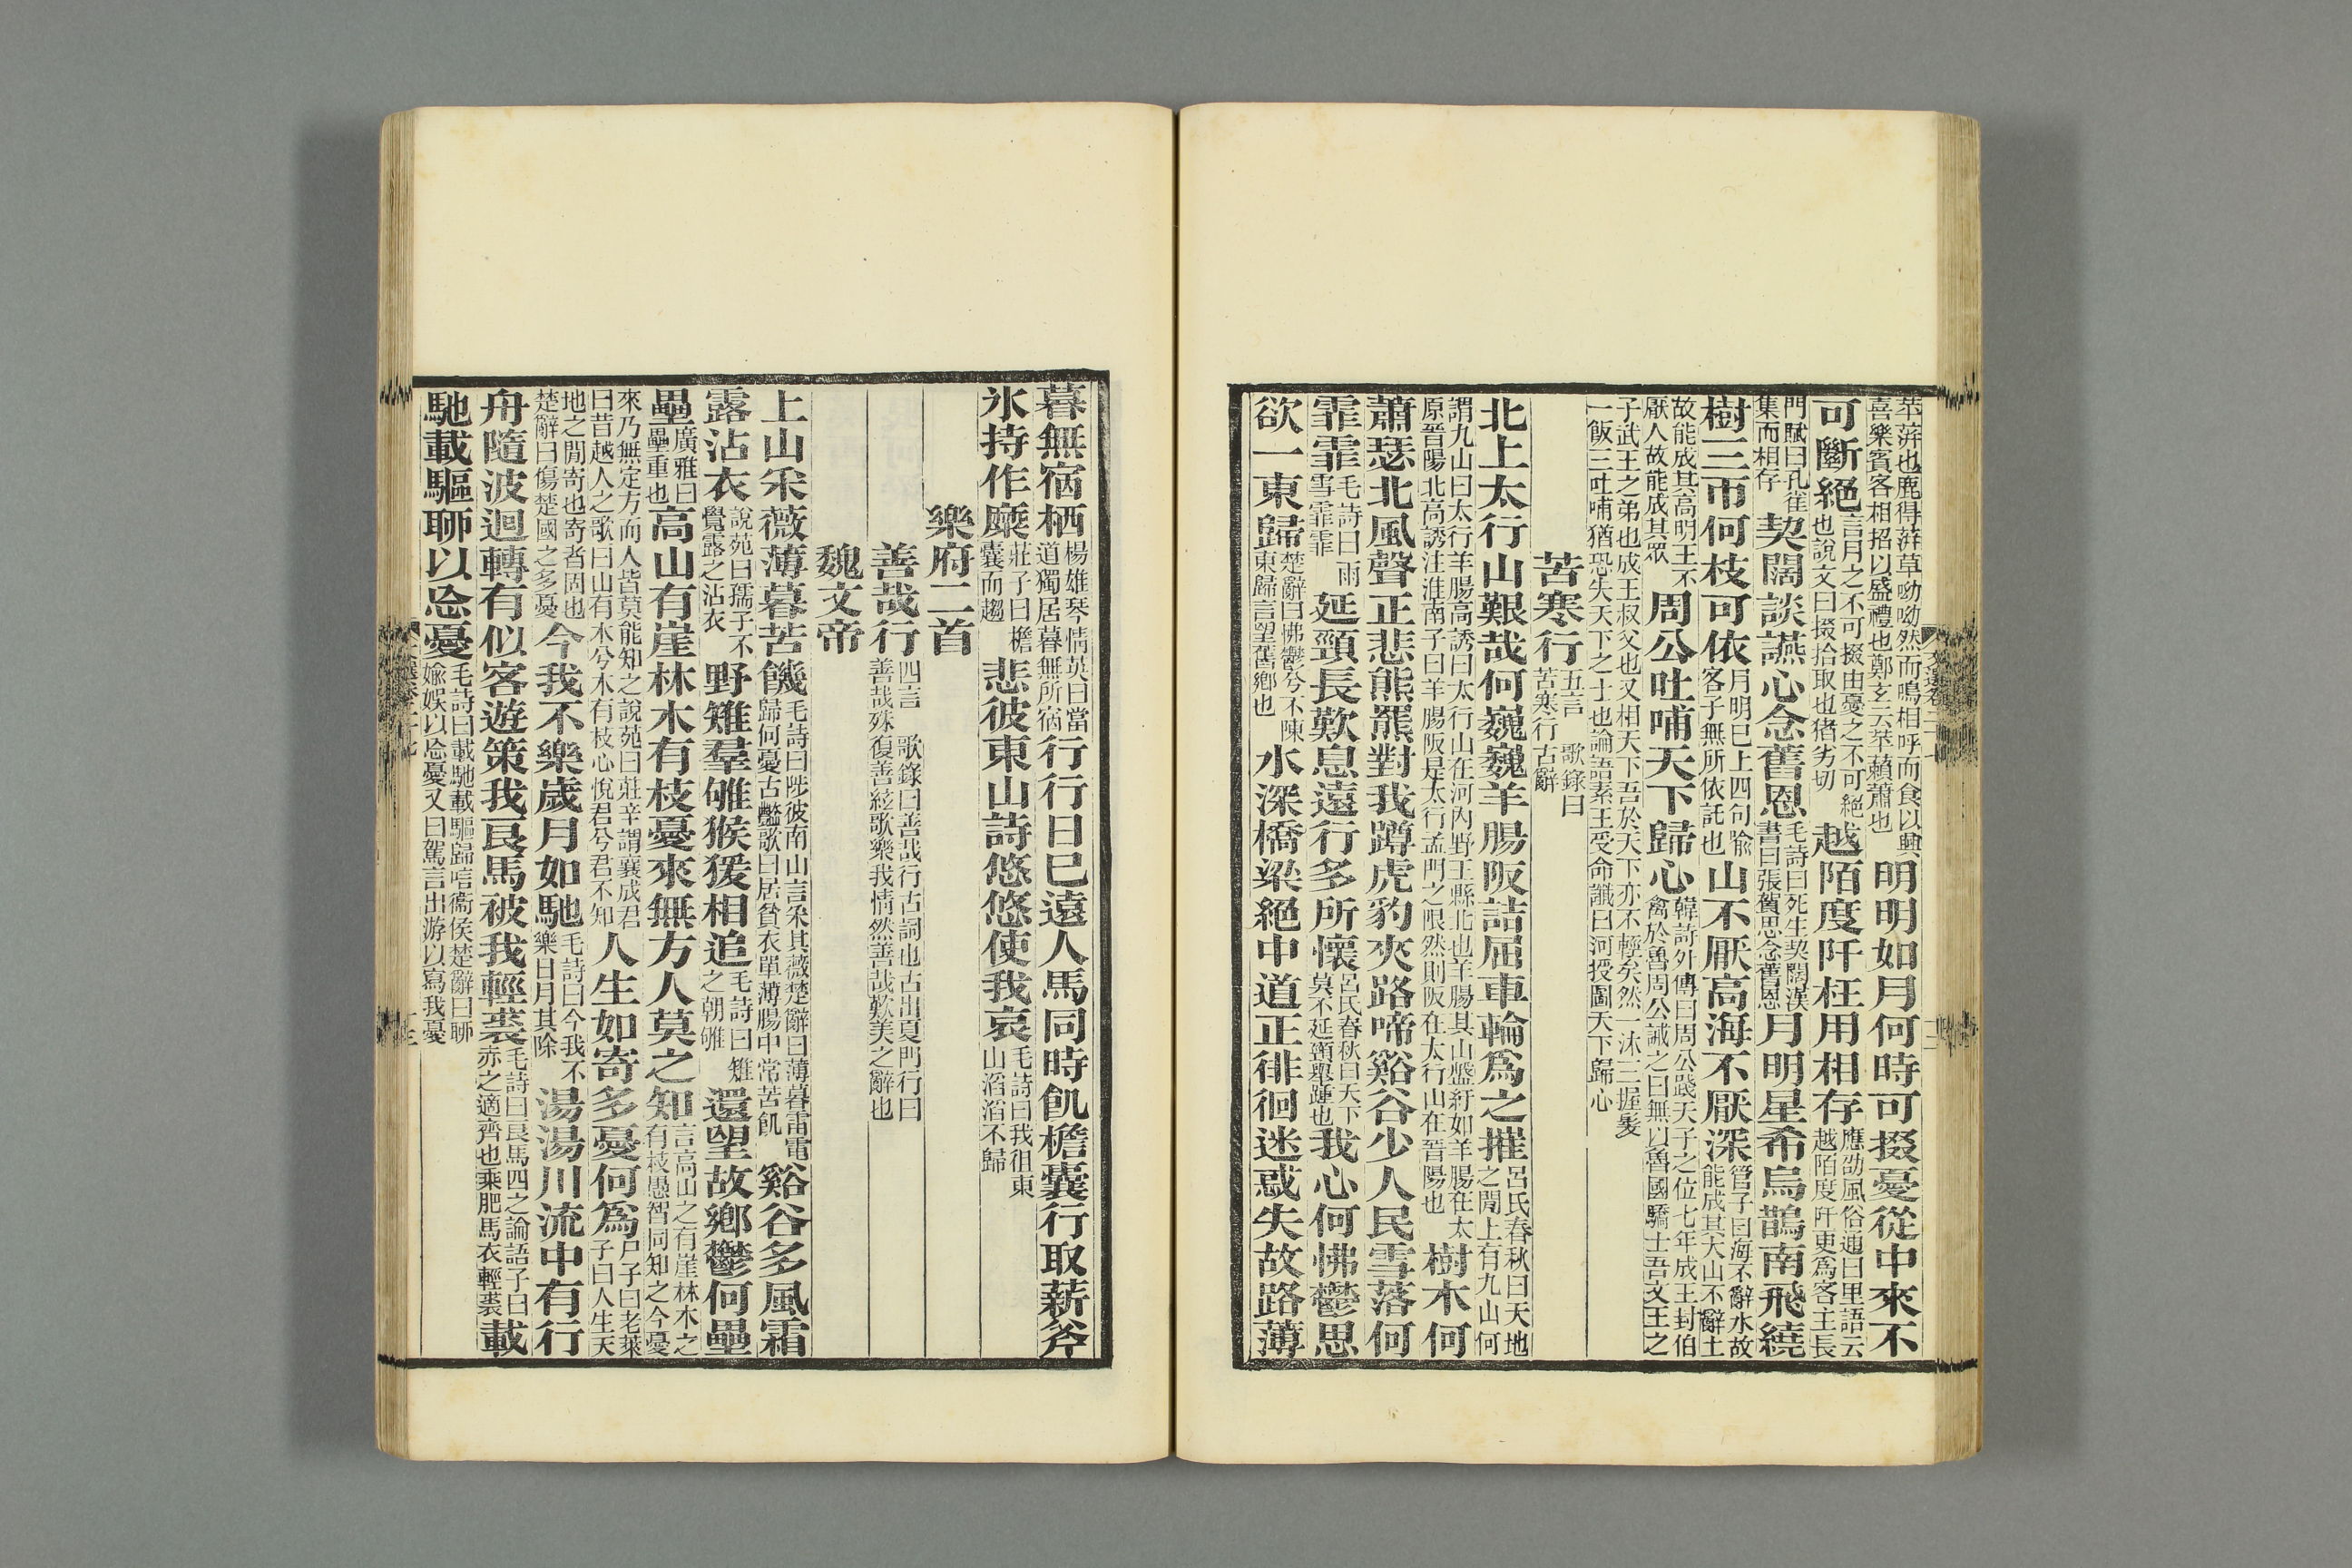 苹蓱也鹿得蓱草呦呦然而鳴相呼而食以興喜樂賓客相招以盛禮也鄭玄云苹藾蕭也明明如月何時可掇憂從中來不
可斷絕言月之不可掇由憂之不可絕也說文曰掇拾取也猪劣切越陌度阡枉用相存應劭風俗通曰里語云越陌度阡更爲客主長
門賦曰孔雀集而相存契闊談讌心念舊恩毛詩曰死生契闊漢書曰張賀思念舊恩月明星希烏鵲南飛繞
樹三帀何枝可依月明已上四句喻客子無所依託也山不厭高海不厭深管子曰海不辭水故能成其大山不辭土
故能成其高明王不厭人故能成其眾周公吐哺天下歸心韓詩外傳曰周公踐天子之位七年成王封伯禽於魯周公誡之曰無以魯國驕士吾文王之
子武王之弟也成王叔父也又相天下吾於天下亦不輕矣然一沐三握髮一飯三吐哺猶恐失天下之士也論語素王受命讖曰河授圖天下歸心
苦寒行五言歌錄曰苦寒行古辭
北上太行山艱哉何巍巍羊腸阪詰屈車輪爲之摧呂氏春秋曰天地之閒上有九山何
謂九山曰太行羊腸高誘曰太行山在河內野王縣北也羊腸其山盤紆如羊腸在太原晉陽北高誘注淮南子曰羊腸阪是太行孟門之限然則阪在太行山在晉陽也樹木何
蕭瑟北風聲正悲熊羆對我蹲虎豹夾路啼谿谷少人民雪落何
霏霏毛詩曰雨雪霏霏延頸長歎息遠行多所懷呂氏春秋曰天下莫不延頸舉踵也我心何怫鬱思
欲一東歸楚辭曰怫鬱兮不陳東歸言望舊鄉也水深橋梁絕中道正徘徊迷惑失故路薄
暮無宿栖楊雄琴情英曰當道獨居暮無所宿行行日已遠人馬同時飢檐囊行取薪斧
氷持作糜莊子曰檐囊而趨悲彼東山詩悠悠使我哀毛詩曰我徂東山滔滔不歸
樂府二首
善哉行四言歌錄曰善哉行古詞也古出夏門行曰善哉殊復善絃歌樂我情然善哉歎美之辭也
魏文帝
上山采薇薄暮苦饑毛詩曰陟彼南山言采其薇楚辭曰薄暮雷電歸何憂古豔歌曰居貧衣單薄腸中常苦飢谿谷多風霜
露沾衣說苑曰孺子不覺露之沾衣野雉羣雊猴猨相追毛詩曰雉之朝雊還望故鄉鬱何壘
壘廣雅曰壘重也高山有崖林木有枝憂來無方人莫之知言高山之有崖林木之有枝愚智同知之今憂
來乃無定方而人皆莫能知之說苑曰莊辛謂襄成君曰昔越人之歌曰山有木兮木有枝心悅君兮君不知人生如寄多憂何爲尸子曰老萊子曰人生天
地之閒寄也寄者固也楚辭曰傷楚國之多憂今我不樂歲月如馳毛詩曰今我不樂日月其除湯湯川流中有行
舟隨波迴轉有似客遊策我良馬被我輕裘毛詩曰良馬四之論語子曰赤之適齊也乘肥馬衣輕裘載
馳載驅聊以忘憂毛詩曰載馳載驅歸唁衞侯楚辭曰聊媮娛以忘憂又曰駕言出游以寫我憂